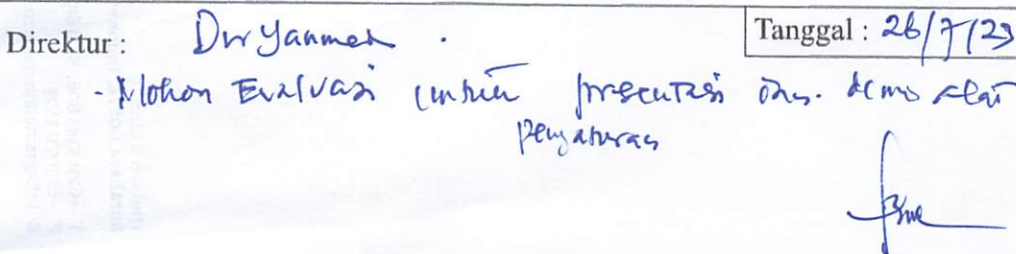 Direktur : Dir Yanmed .
Tanggal : 26/7/23
- Mohon Evaluasi untuk presentasi dan demo alat
pengaturan